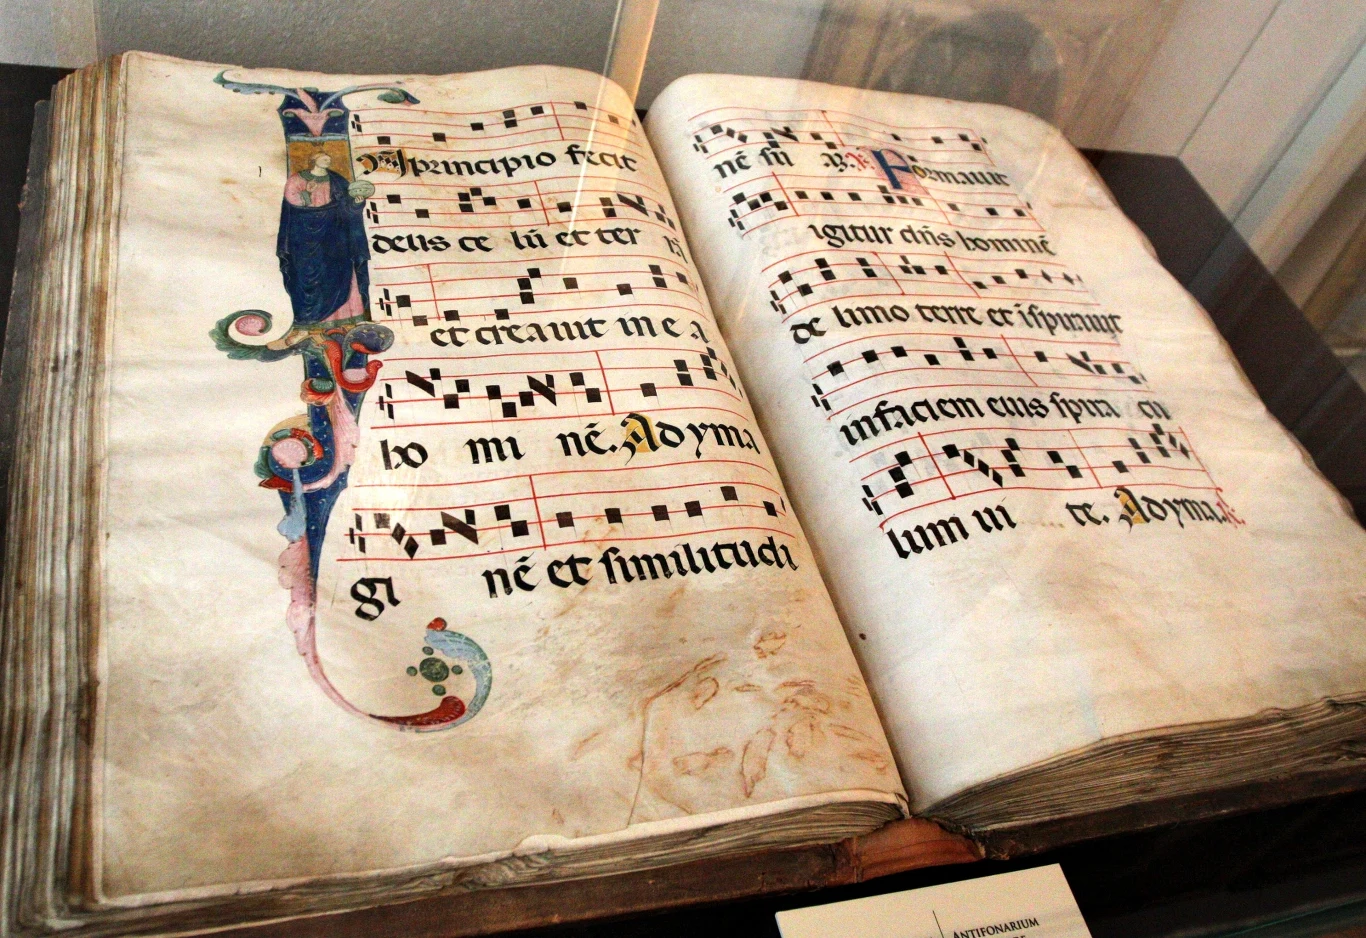 IN principio fecit
deus ce lũ et ter rã
et creauit in e a
ho mi nē. Ad yma
gi nē et similitudi
nē su ã. ℣. Formauit
igitur dñs hominē
de limo terre et ĩspirauit
in faciem eius spira cu
lum ui te. Ad yma.
ANTIFONARIUM